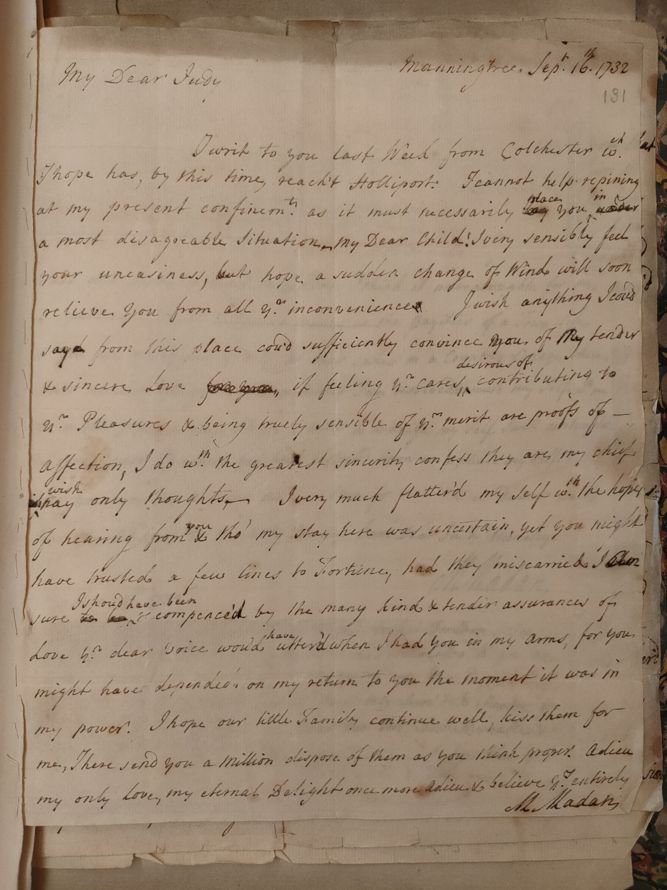 Manningtree. Sepr. 16th. 1732
131
My Dear Judy
I writ to you last Week from Colchester wch.
I hope has, by this time, reach't Holliport. I cannot help repining
at my present confinemt. as it must necessarily place you in
a most disagreable Situation, my Dear Child! I very sensibly feel
your uneasiness, but hope a sudden change of Wind will soon
relieve you from all yr. inconveniences I wish anything I cou'd
saye from this place cou'd sufficiently convince you of My tender
& sincere Love for you, if feeling yr. cares, desirous of contributing to
yr. Pleasures & being truely sensible of yr. merit, are proofs of —
affection, I do wth. the greatest sincerity confess they are my chief
wish nay only thoughts. I very much flatter'd my self wth. the hopes
of hearing from you & tho' my stay here was uncertain, yet you might
have trusted a few lines to Fortune, had they miscarried I
sure I should have been recompenced by the many kind & tender assurances of
Love yr. dear Voice wou'd have utter'd when I had you in my arms, for you
might have depended on my return to you the moment it was in
my power. I hope our little Family continue well, kiss them for
me, I here send you a Million dispose of them as you think proper. Adieu
my only Love, my eternal Delight once more adieu & believe yr. entirely
M Madan